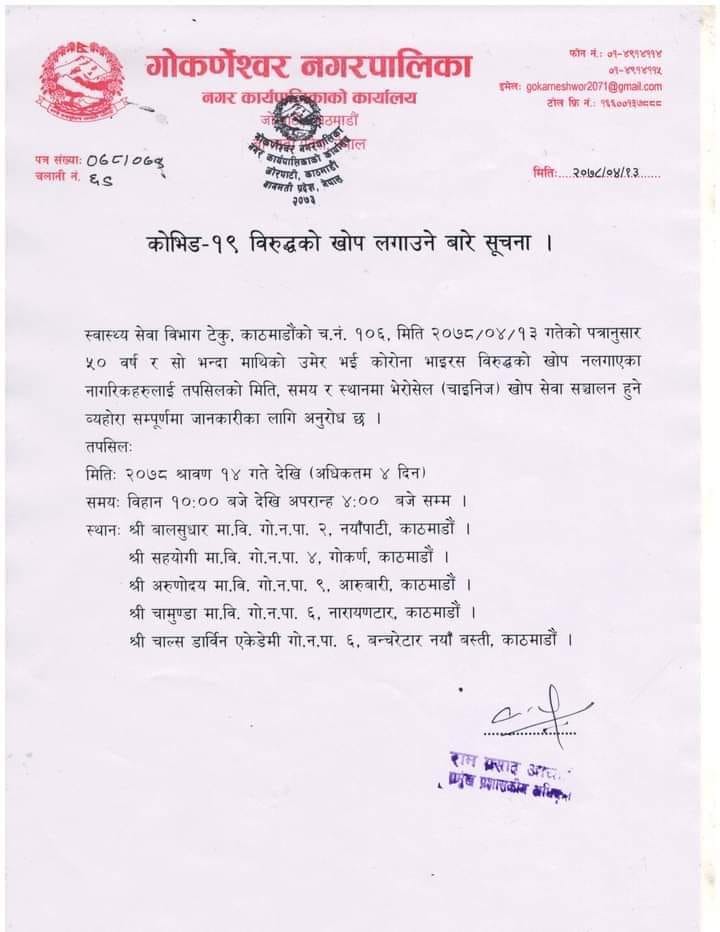 गोकर्णेश्वर नगरपालिका
नगर कार्यपालिकाको कार्यालय
फोन नं.: ०१-४९१४११४
०१-४९१४११५
इमेल: gokarneshwor2071@gmail.com
टोल फ्रि नं.: १६६००१३७८८८
गोकर्णेश्वर नगरपालिका
नगर कार्यपालिकाको कार्यालय
जोरपाटी, काठमाडौं
बागमती प्रदेश, नेपाल
२०७३
पत्र संख्या:
चलानी नं.
मितिः....२०७८/०४/१३......
कोभिड-१९ विरुद्धको खोप लगाउने बारे सूचना ।
स्वास्थ्य सेवा विभाग टेकु, काठमाडौंको च.नं. १०६, मिति २०७८/०४/१३ गतेको पत्रानुसार
५० वर्ष र सो भन्दा माथिको उमेर भई कोरोना भाइरस विरुद्धको खोप नलगाएका
नागरिकहरुलाई तपसिलको मिति, समय र स्थानमा भेरोसेल (चाइनिज) खोप सेवा सञ्चालन हुने
व्यहोरा सम्पूर्णमा जानकारीका लागि अनुरोध छ ।
तपसिलः
मितिः २०७८ श्रावण १४ गते देखि (अधिकतम ४ दिन)
समयः विहान १०:०० बजे देखि अपरान्ह ४:०० बजे सम्म ।
स्थानः श्री बालसुधार मा.वि. गो.न.पा. २, नयाँपाटी, काठमाडौं ।
श्री सहयोगी मा.वि. गो.न.पा. ४, गोकर्ण, काठमाडौं ।
श्री अरुणोदय मा.वि. गो.न.पा. ९, आरुबारी, काठमाडौं ।
श्री चामुण्डा मा.वि. गो.न.पा. ६, नारायणटार, काठमाडौं ।
श्री चाल्स डार्विन एकेडेमी गो.न.पा. ६, बन्चरेटार नयाँ बस्ती, काठमाडौं ।
राम प्रसाद
प्रमुख प्रशासकीय